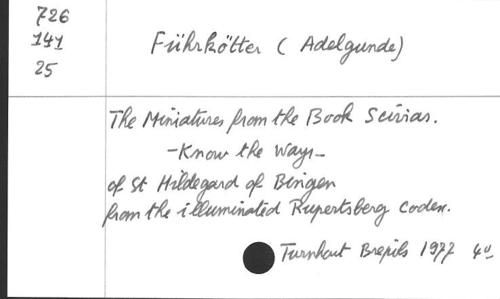 726
141
25
Führkötter ( Adelgunde)
The Miniatures from the Book Scivias.
-Know the Ways-
of St Hildegard of Bingen
from the illuminated Rupertsberg codex.
Turnhout Brepols 1977 4°